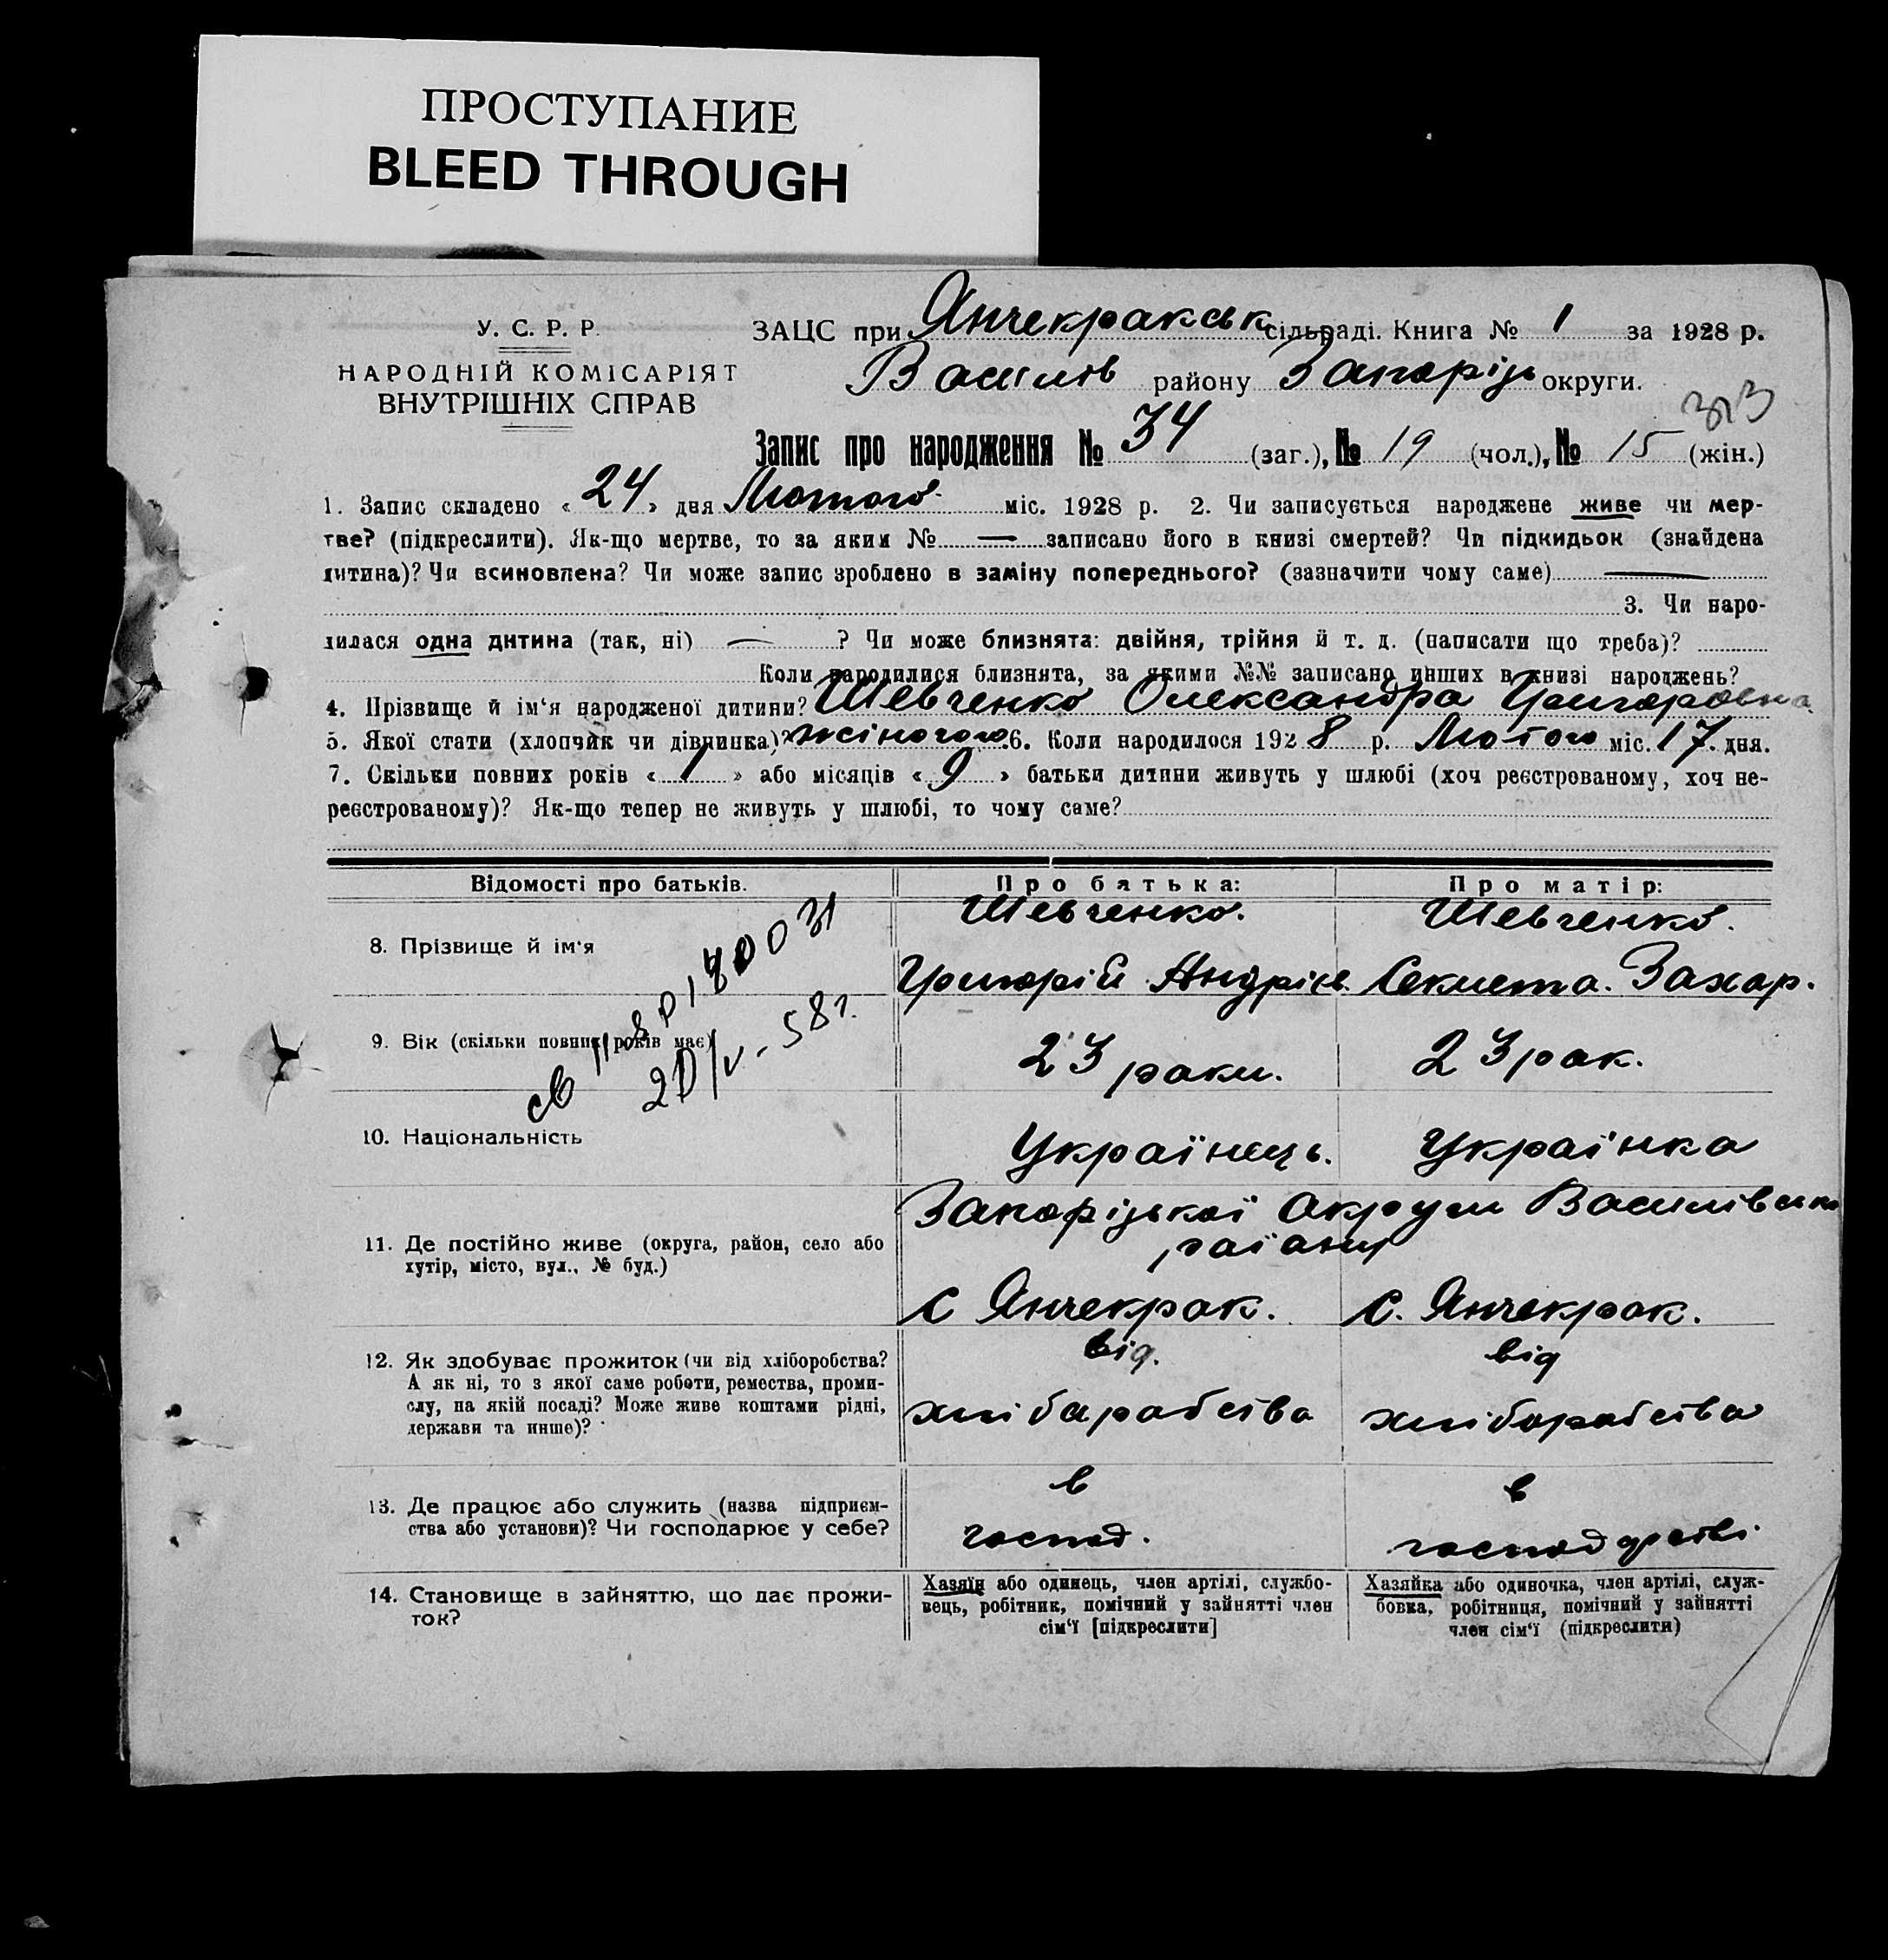 ПРОСТУПАНИЕ
BLEED THROUGH
У. С. Р. Р.
НАРОДНІЙ КОМІСАРІЯТ
ВНУТРІШНІХ СПРАВ
ЗАЦС при Янчекракськ сільраді. Книга № 1 за 1928 р.
Василів району Запоріз округи.
Запис про народження № 34 (заг.), № 19 (чол.), № 15 (жін.)
1. Запис складено « 24 » дня Лютого міс. 1928 р. 2. Чи записується народжене живе чи мер-
тве? (підкреслити). Як-що мертве, то за яким № — записано його в книзі смертей? Чи підкидьок (знайдена
дитина)? Чи всиновлена? Чи може запис зроблено в заміну попереднього? (зазначити чому саме) —
3. Чи наро-
дилася одна дитина (так, ні) — ? Чи може близнята: двійня, трійня й т. д. (написати що треба)?
Коли народилися близнята, за якими №№ записано инших в книзі народжень?
4. Прізвище й ім'я народженої дитини? Шевченко Олександра Григоровна
5. Якої статі (хлопчик чи дівчинка)? жіночого. 6. Коли народилося 1928 р. Лютого міс. 17. дня.
7. Скільки повних років « 1 » або місяців « 9 » батьки дитини живуть у шлюбі (хоч реєстрованому, хоч не-
реєстрованому)? Як-що тепер не живуть у шлюбі, то чому саме?
Відомості про батьків. Про батька: Про матір:
8. Прізвище й ім'я
Шевченко. Шевченко.
Григорій Андріє. Секлета. Захар.
9. Вік (скільки повних років має)
23 роки. 23 рок.
20/V - 58 г.
10. Національність
Українець. Українка
11. Де постійно живе (округа, район, село або
хутір, місто, вул., № буд.)
Запорізької округи Василівсько
раіану
с Янчекрак. с. Янчекрак.
12. Як здобуває прожиток (чи від хліборобства?
А як ні, то з якої саме роботи, ремества, проми-
слу, на якій посаді? Може живе коштами рідні,
держави та инше)?
від. від
хліборобства хліборобства
13. Де працює або служить (назва підприєм-
ства або установи)? Чи господарює у себе?
в в
господ. господарстві
14. Становище в зайняттю, що дає прожи-
ток?
Хазяїн або одинець, член артілі, службо-
вець, робітник, помічний у зайнятті член
сім'ї [підкреслити]
Хазяйка або одиночка, член артілі, служ-
бовка, робітниця, помічний у зайнятті
член сім'ї (підкреслити)